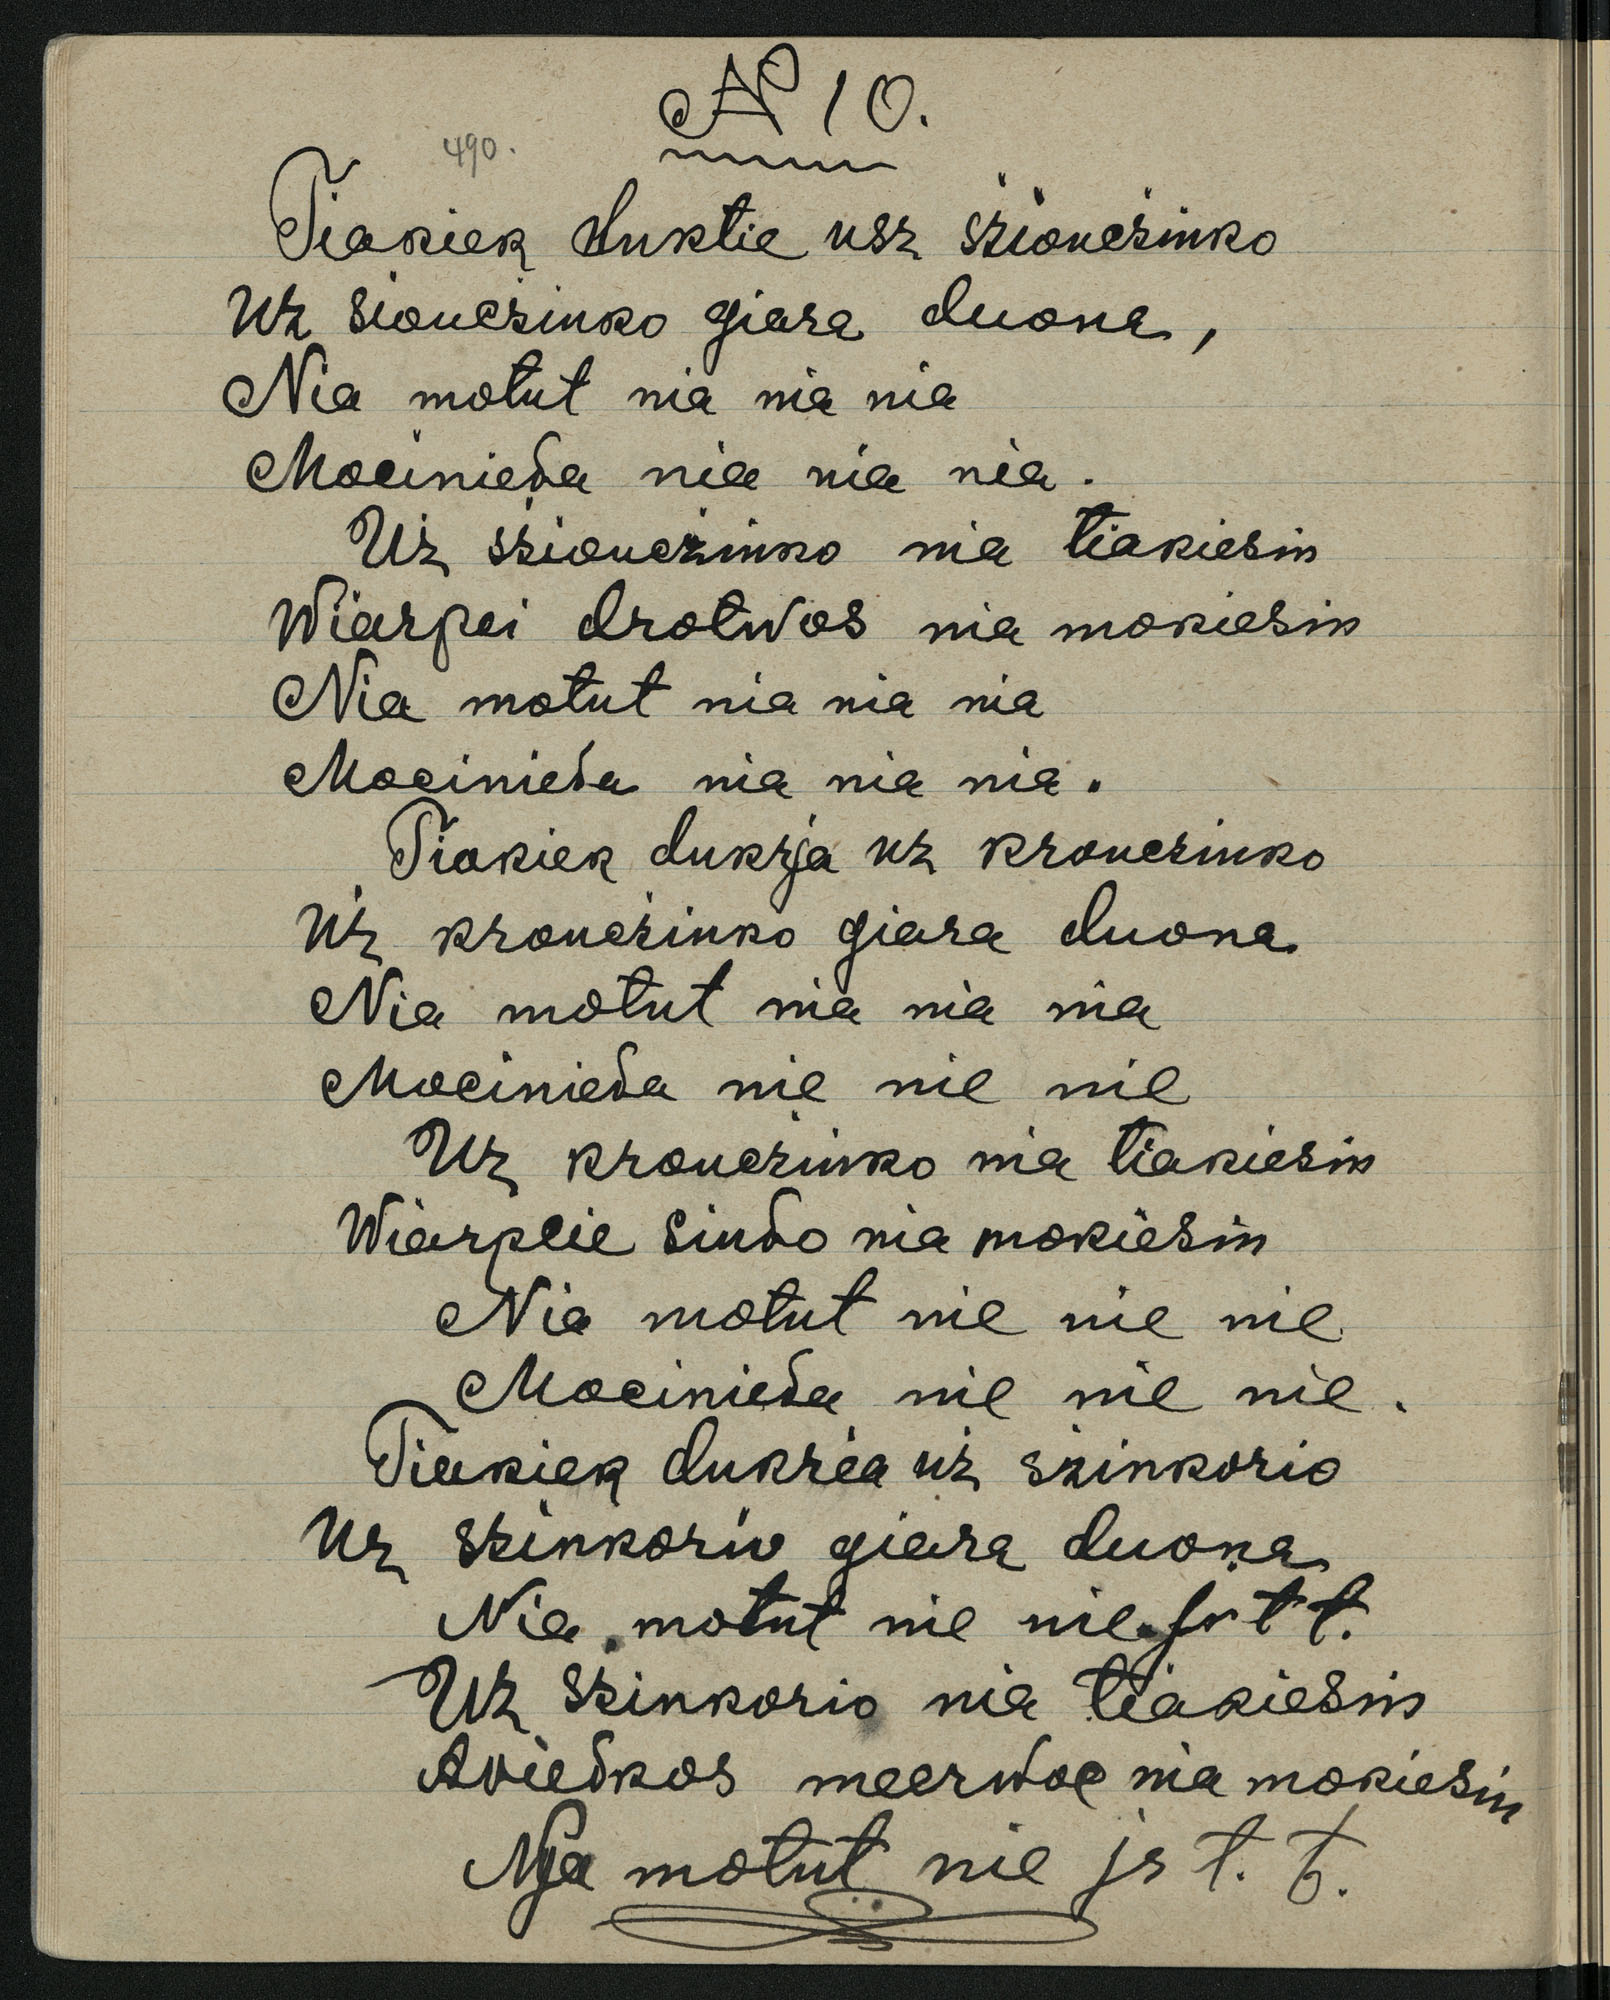 № 10.
490.
Tiakiek duktie usz sziouczinko
Uz siouczinko giara duona,
Nia motut nia nia nia
Mocinieda nia nia nia.
Uz sziouczinko nia tiakiesin
Wiarpei drotwos nia mokiesin
Nia motut nia nia nia
Mocinieda nia nia nia.
Tiakiek dukrja uz krouczinko
Uz krouczinko giara duona
Nia motut nia nia nia
Mocinieda nie nie nie
Uz krouczinko nia tiakiesin
Wiarpcie siudo nia mokiesin
Nia motut nie nie nie
Mocinieda nie nie nie.
Tiakiek dukria uz szinkorio
Uz szinkorio giara duona
Nia motut nie nie ir t t.
Uz szinkorio nia tiakiesin
Aviedkos nia mokiesin
Nja motut nie ir t. t.